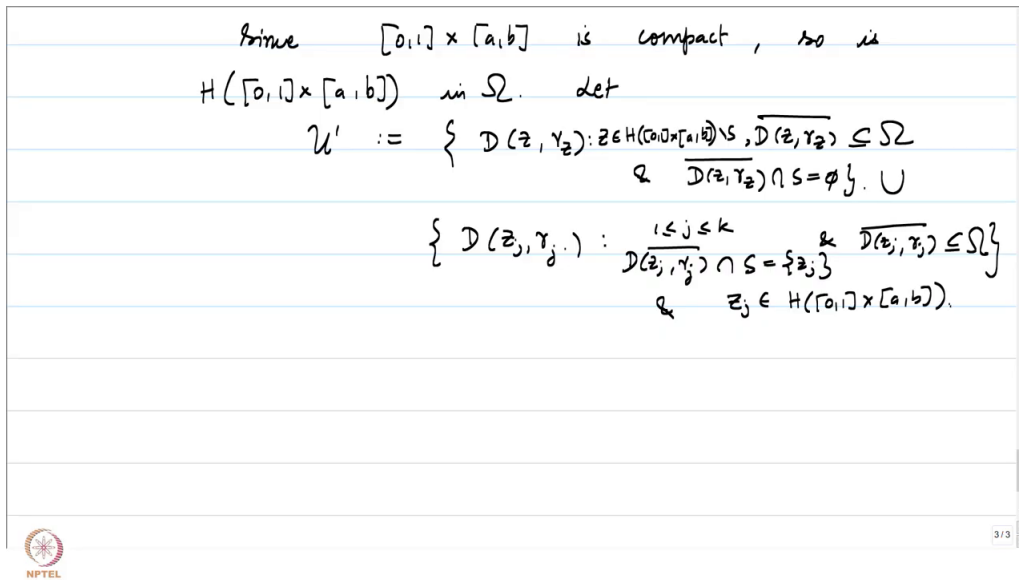 Since [0,1] × [a,b] is compact, so is
H([0,1] × [a,b]) in Ω. Let
U' := { D(z, r_z) : z ∈ H([0,1]×[a,b])\S , \overline{D(z, r_z)} ⊆ Ω
& \overline{D(z, r_z)} ∩ S = φ}. ∪
{ D(z_j, r_j.) : 1 ≤ j ≤ k
\overline{D(z_j, r_j)} ∩ S = {z_j} & \overline{D(z_j, r_j)} ⊆ Ω}
& z_j ∈ H([0,1] × [a,b]).
3 / 3
NPTEL